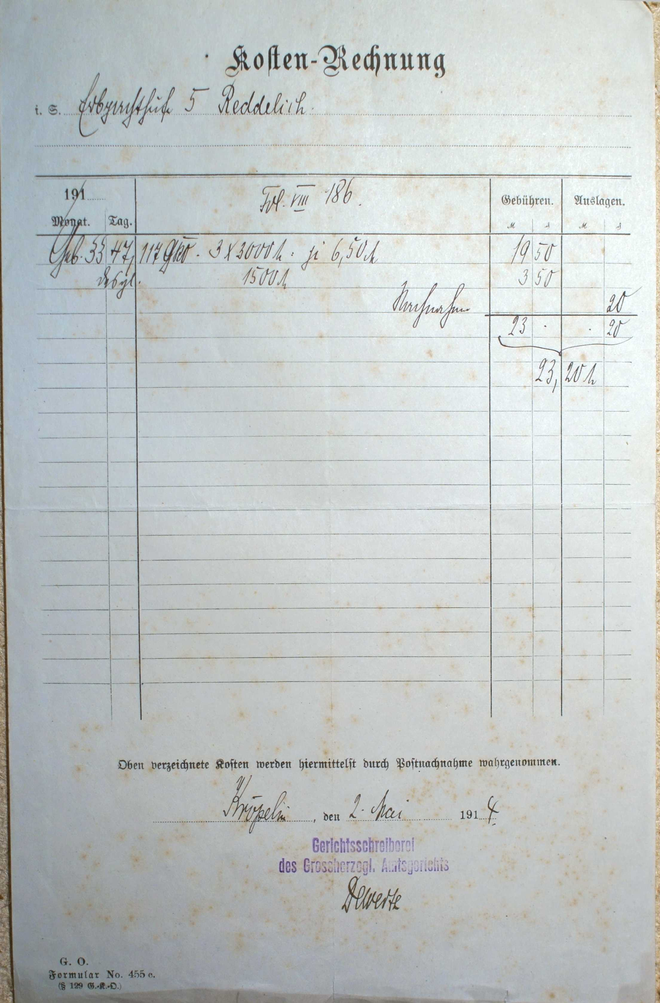 Kosten-Rechnung
i. S. Erbpachthufe 5 Reddelich.
191
Fol. VIII 186.
Gebühren. Auslagen.
Monat. Tag.
M ₰ M ₰
Geb. 33, 47, 117 GKO. 3 X 3000 M. je 6,50 M 19 50
desgl. 1500 M 3 50
Nachnahme 20
23 . . 20
23, 20 M
Oben verzeichnete Kosten werden hiermittelst durch Postnachnahme wahrgenommen.
Kröpelin, den 2. Mai 1914
Gerichtsschreiberei
des Grossherzogl. Amtsgerichts
G. O.
Formular No. 455 c.
(§ 129 G.-K.-O.)